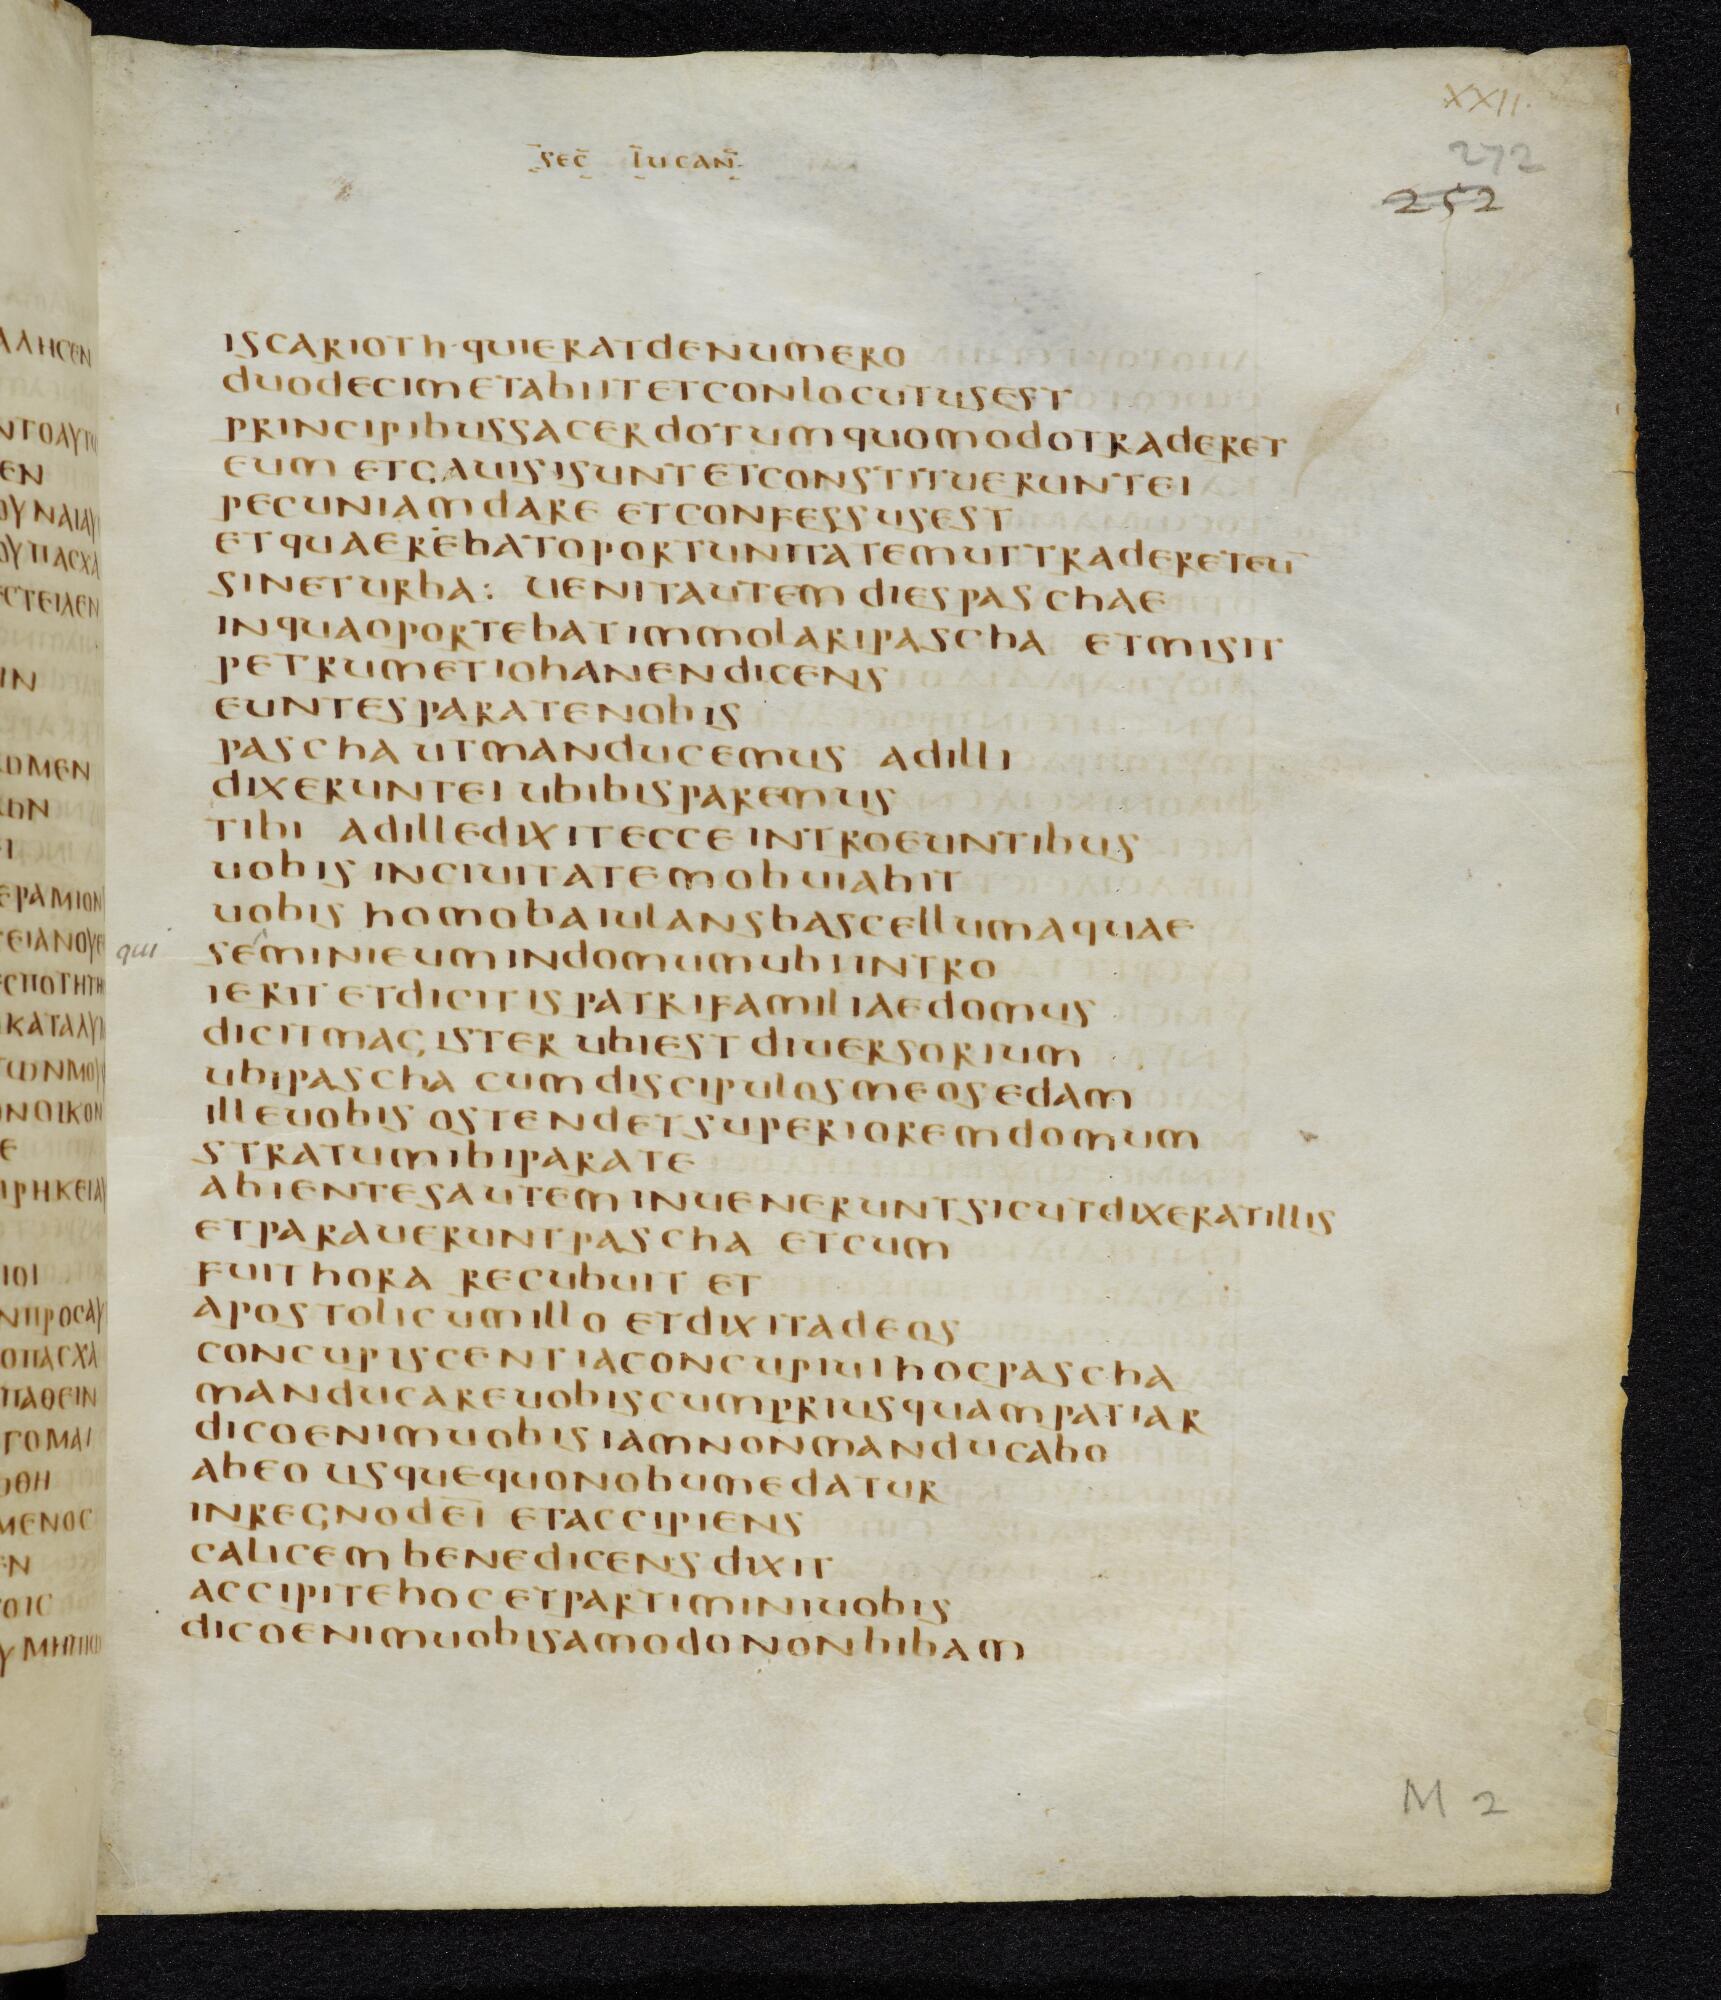 XXII.
272
252
SEC̄ LUCAN̄
ISCARIOTH·QUIERATDENUMERO
DUODECIMETABIITETCONLOCUTUSEST
PRINCIPIBUSSACERDOTUMQUOMODOTRADERET
EUM ETGAUISISUNTETCONSTITUERUNTEI
PECUNIAMDARE ETCONFESSUSEST
ETQUAEREBATOPORTUNITATEMUTTRADERETEŪ
SINETURBA: UENITAUTEM DIESPASCHAE
INQUAOPORTEBATIMMOLARIPASCHA ETMISIT
PETRUMETIOHANENDICENS
EUNTESPARATENOBIS
PASCHAUTMANDUCEMUS ADILLI
DIXERUNTEI UBIBISPAREMUS
TIBI ADILLEDIXITECCEINTROEUNTIBUS
UOBISINCIUITATEMOBUIABIT
UOBIS HOMOBAIULANSBASCELLUMAQUAE
qui SEMINIEUMINDOMUMUBIINTRO
IERIT ETDICITISPATRIFAMILIAEDOMUS
DICITMAGISTER UBIESTDIUERSORIUM
UBIPASCHA CUMDISCIPULOSMEOSEDAM
ILLEUOBIS OSTENDETSUPERIOREMDOMUM
STRATUMIBIPARATE
ABIENTESAUTEMINUENERUNTSICUTDIXERATILLIS
ETPARAUERUNTPASCHA ETCUM
FUITHORA RECUBUIT ET
APOSTOLICUMILLO ETDIXITADEOS
CONCUPISCENTIACONCUPIUIHOCPASCHA
MANDUCAREUOBISCUMPRIUSQUAMPATIAR
DICOENIMUOBISIAMNONMANDUCABO
ABEO USQUEQUONOBUMEDATUR
INREGNODEĪ ETACCIPIENS
CALICEMBENEDICENSDIXIT
ACCIPITEHOCETPARTIMINIUOBIS
DICOENIMUOBISAMODONONBIBAM
M 2
ΑΛΗϹΕΝ
ΕΝ
ΟΥΠΑϹΧΑ
ΕϹΤΕΙΛΕΝ
ΙΝ
ΟΜΕΝ
ΕΡΑΜΙΟΝ
ΚΑΤΑΛΥ
ΤΩΝΜΟΥ
ΝΟΙΚΟΝ
Ε
ΙΟΙ
ΝΠΡΟϹΑΥ
ΟΠΑϹΧΑ
ΠΑΘΕΙΝ
ΓΟΜΑΙ
ΩΘΗ
ΜΕΝΟϹ
ΕΝ
ΟΙϹ